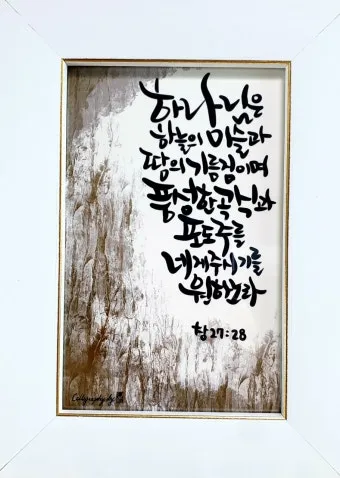 하나님은
하늘의 이슬과
땅의 기름짐이며
풍성한 곡식과
포도주를
네게 주시기를
원하노라
창27:28